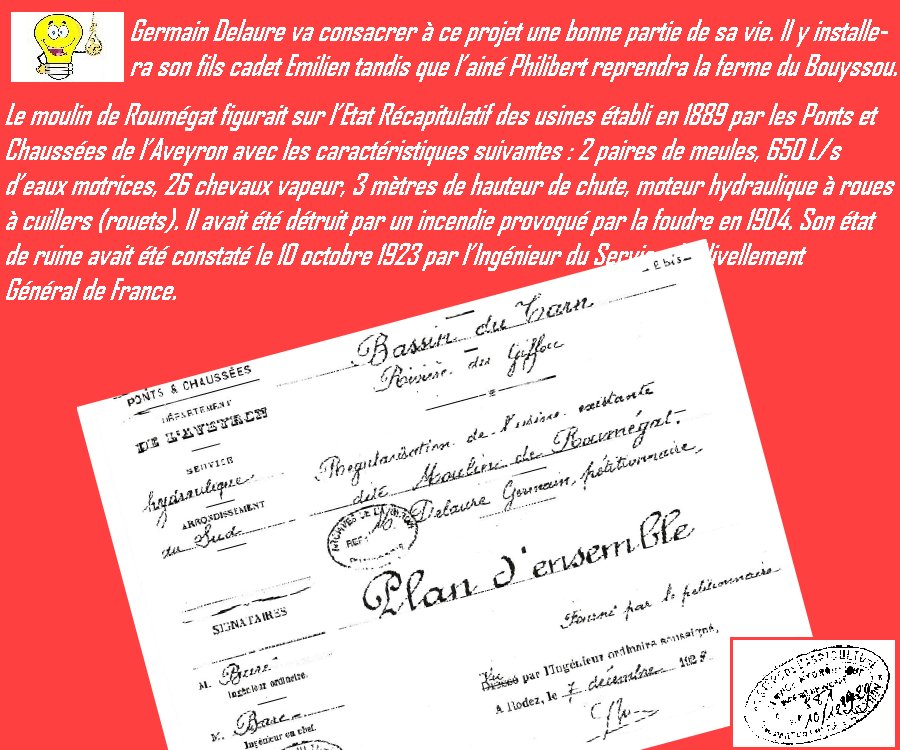 Germain Delaure va consacrer à ce projet une bonne partie de sa vie. Il y installe-
ra son fils cadet Emilien tandis que l'ainé Philibert reprendra la ferme du Bouyssou.
Le moulin de Roumégat figurait sur l'Etat Récapitulatif des usines établi en 1889 par les Ponts et
Chaussées de l'Aveyron avec les caractéristiques suivantes : 2 paires de meules, 650 L/s
d'eaux motrices, 26 chevaux vapeur, 3 mètres de hauteur de chute, moteur hydraulique à roues
à cuillers (rouets). Il avait été détruit par un incendie provoqué par la foudre en 1904. Son état
de ruine avait été constaté le 10 octobre 1923 par l'Ingénieur du
Général de France.
PONTS & CHAUSSÉES
DÉPARTEMENT
DE L'AVEYRON
SERVICE
hydraulique
ARRONDISSEMENT
du Sud
SIGNATAIRES
M.
Ingénieur ordinaire.
M.
Ingénieur en chef.
Bassin du Tarn
Rivière du Giffou
Régularisation de l'usine existante
dite Moulin de Roumégat.
M. Delaure Germain, pétitionnaire,
Plan d'ensemble
Fourni par le pétitionnaire
Vu par l'Ingénieur ordinaire soussigné,
A Rodez, le 7 décembre